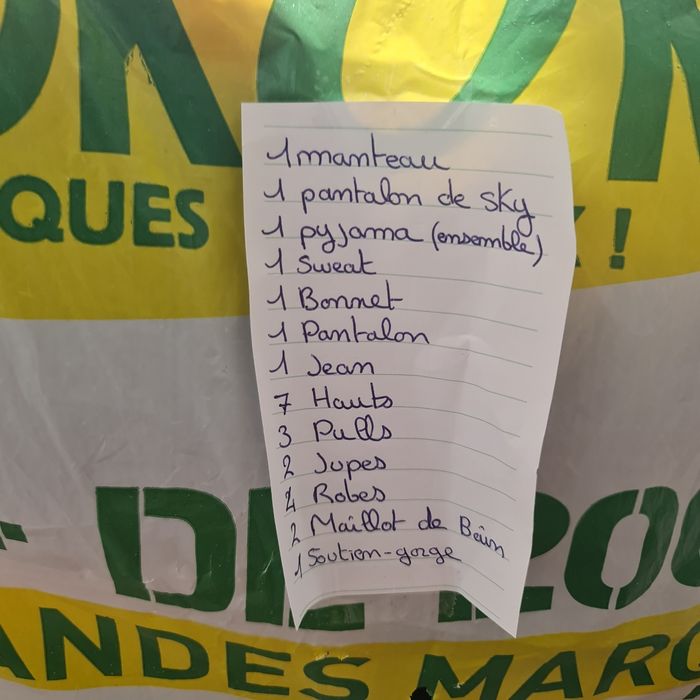 QUES
!
1 manteau
1 pantalon de sky
1 pyjama (ensemble)
1 Sweat
1 Bonnet
1 Pantalon
1 Jean
7 Hauts
3 Pulls
2 Jupes
Robes
2 Maillot de Bain
1 Soutien-gorge
ANDES MARQ